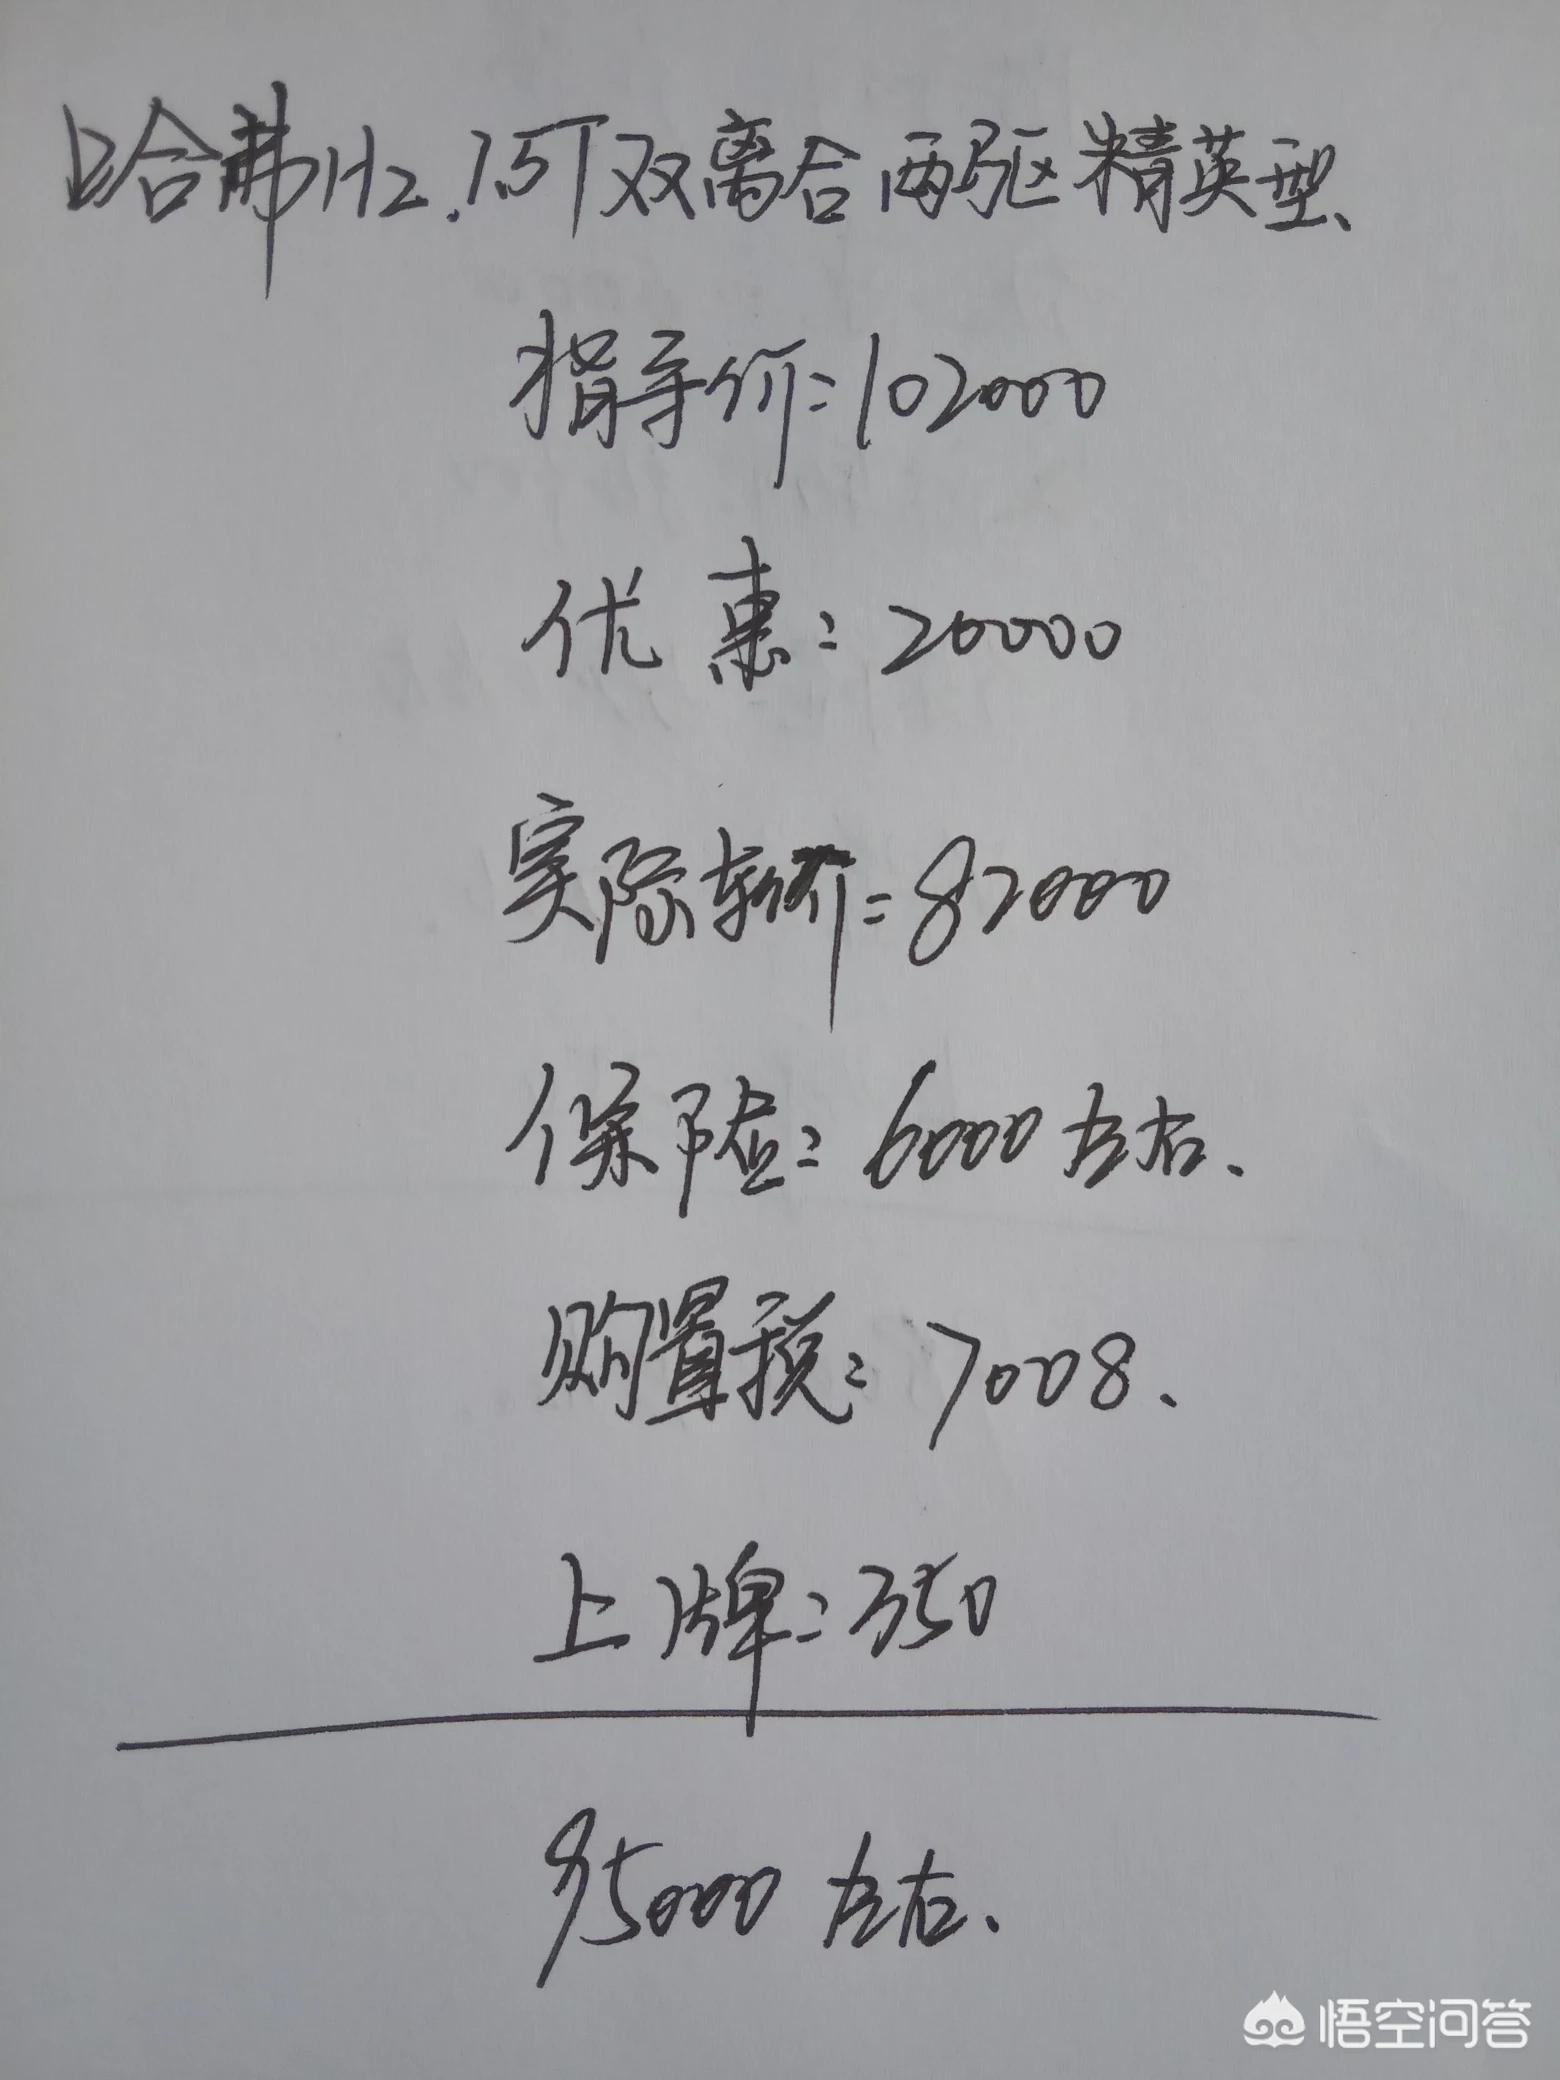 哈弗H2.1.5T双离合两驱精英型、
指导价:102000
优惠:20000
实际车价:82000
保险:6000左右.
购置税:7008.
上牌:350
95000左右.
悟空问答